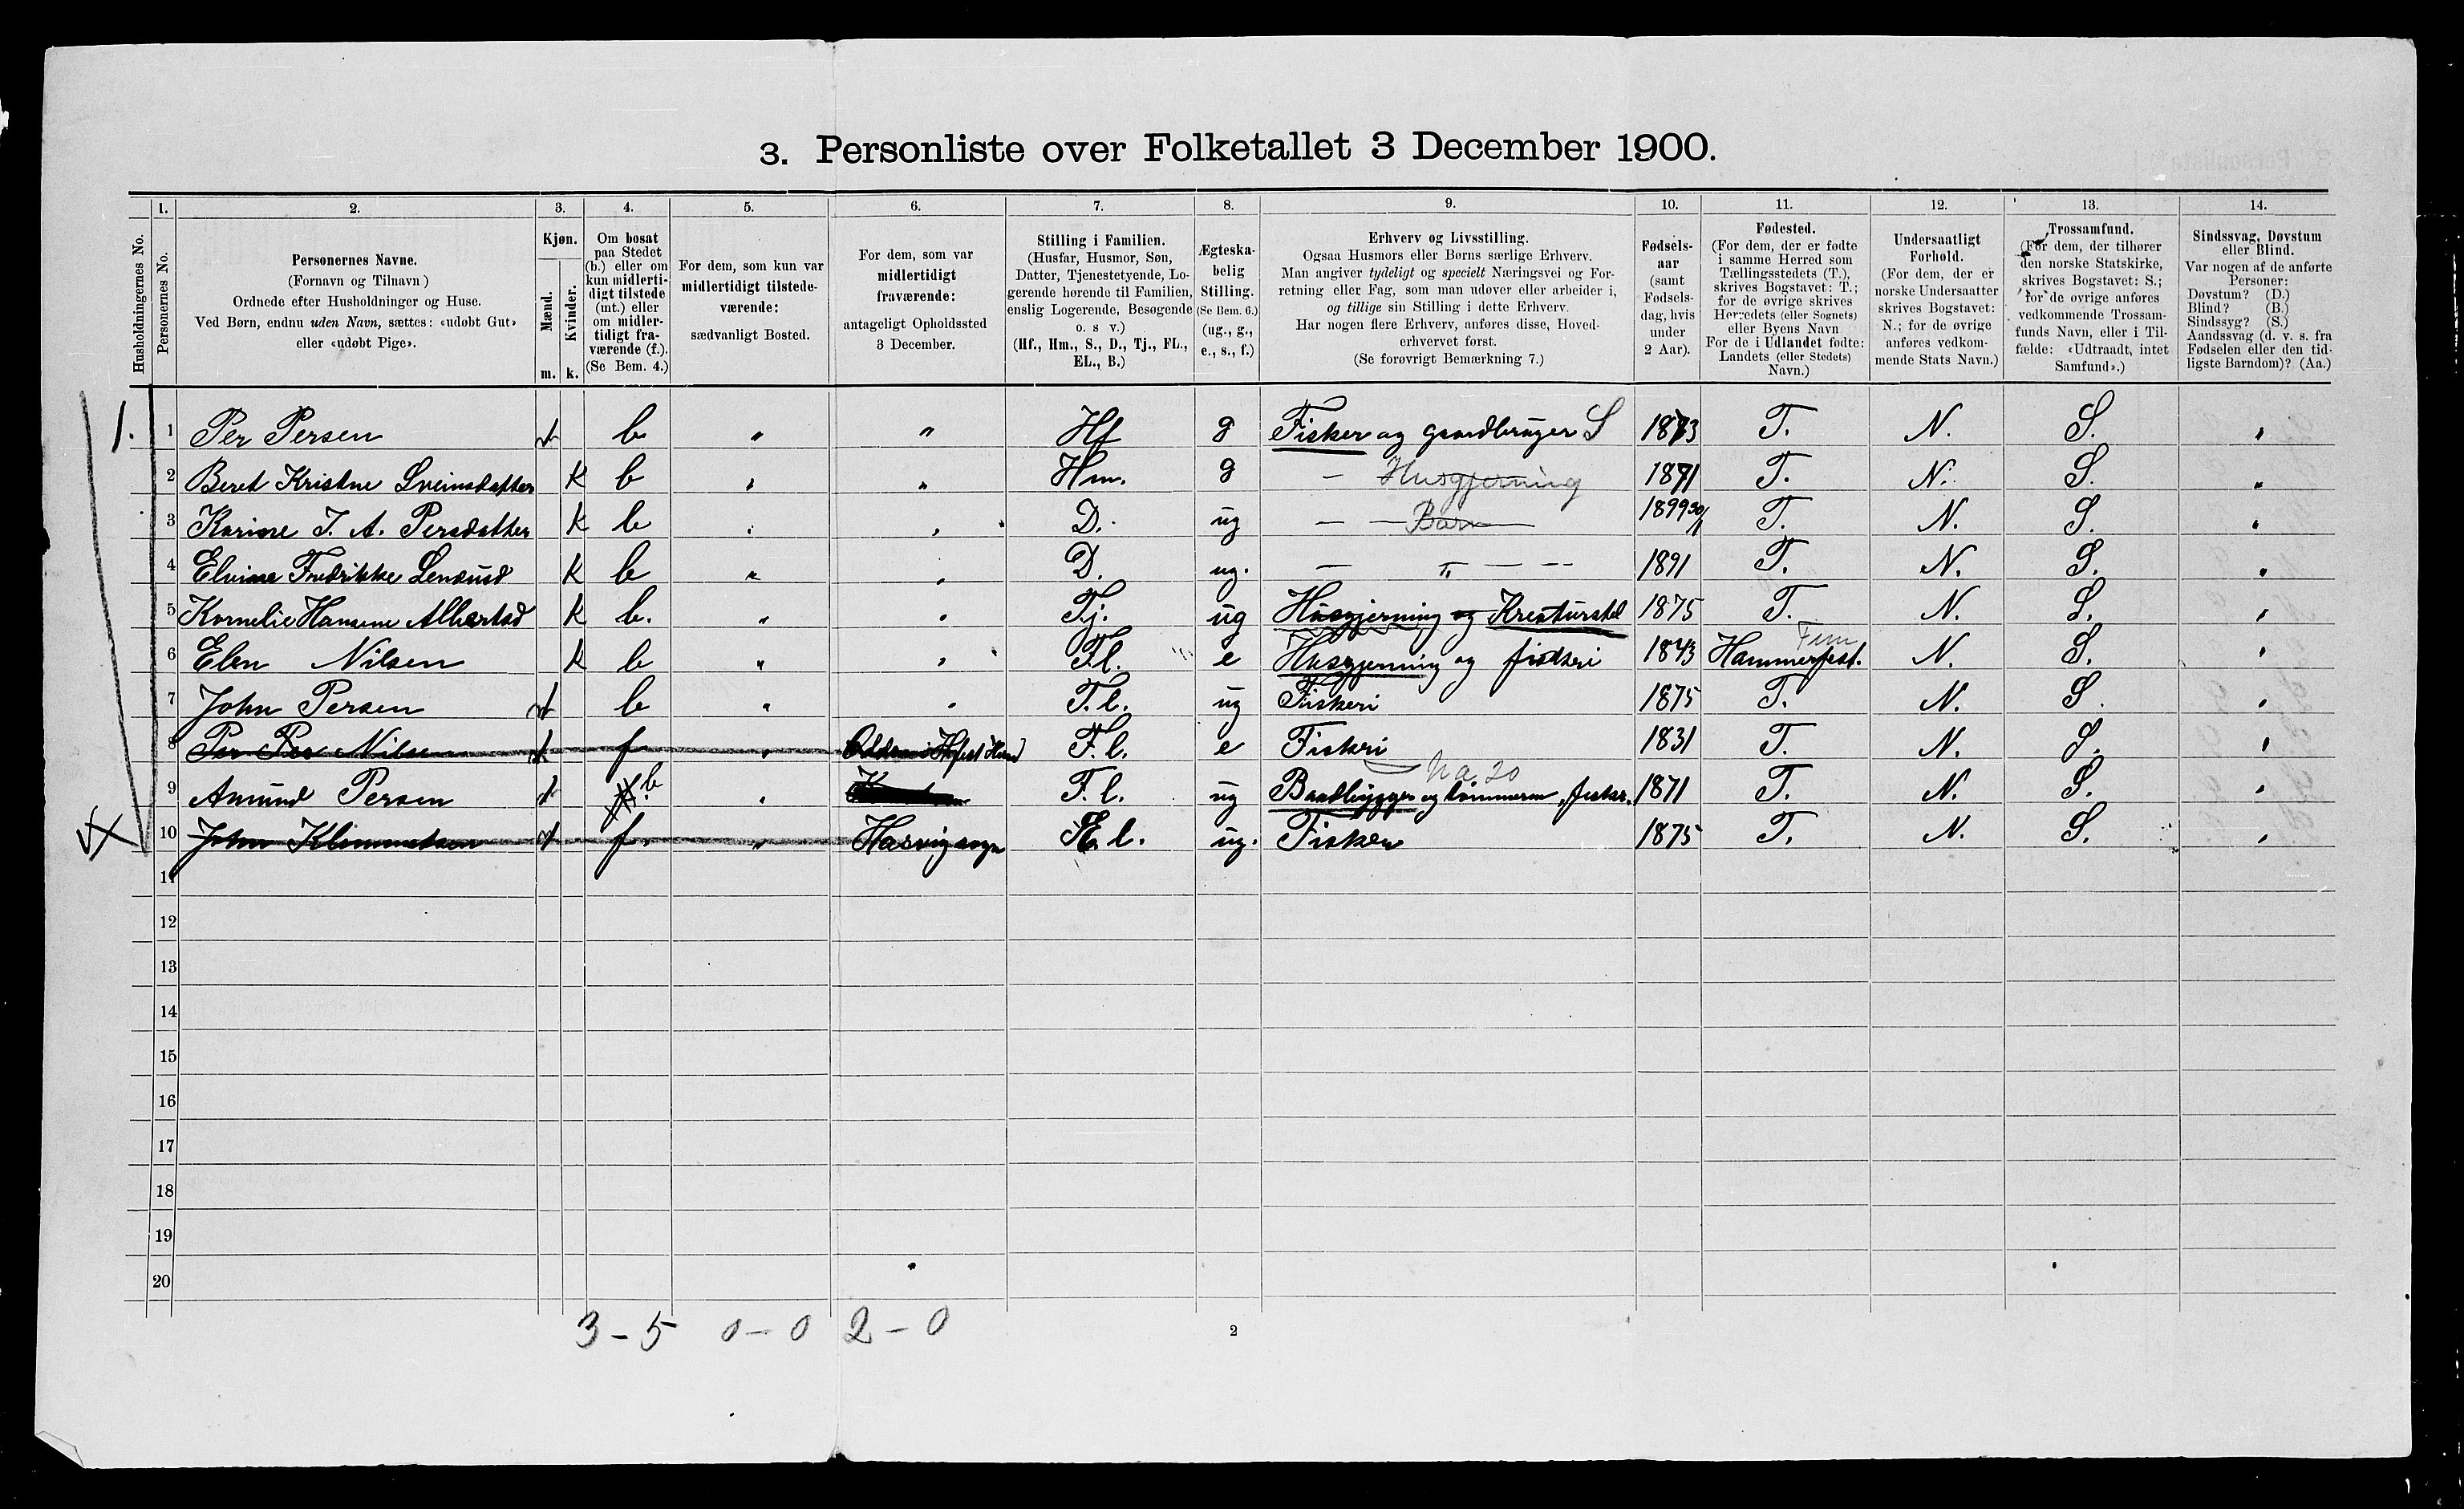 3. Personliste over Folketallet 3 December 1900.
Husholdningernes No.
1. Personernes No.
2. Personernes Navne. (Fornavn og Tilnavn) Ordnede efter Husholdninger og Huse. Ved Børn, endnu uden Navn, sættes: «udøbt Gut» eller «udøbt Pige».
3. Kjøn. Mænd. m. Kvinder. k.
4. Om bosat paa Stedet (b.) eller om kun midlertidigt tilstede (mt.) eller om midlertidigt fraværende (f.). (Se Bem. 4.)
5. For dem, som kun var midlertidigt tilstedeværende: sædvanligt Bosted.
6. For dem, som var midlertidigt fraværende: antageligt Opholdssted 3 December.
7. Stilling i Familien. (Husfar, Husmor, Søn, Datter, Tjenestetyende, Logerende hørende til Familien, enslig Logerende, Besøgende o. s v.) (Hf., Hm., S., D., Tj., FL., EL., B.)
8. Ægteskabelig Stilling. (Se Bem. 6.) (ug., g., e., s., f.)
9. Erhverv og Livsstilling. Ogsaa Husmors eller Børns særlige Erhverv. Man angiver tydeligt og specielt Næringsvei og Forretning eller Fag, som man udøver eller arbeider i, og tillige sin Stilling i dette Erhverv. Har nogen flere Erhverv, anføres disse, Hovederhvervet først. (Se forøvrigt Bemærkning 7.)
10. Fødselsaar (samt Fødselsdag, hvis under 2 Aar).
11. Fødested. (For dem, der er fødte i samme Herred som Tællingsstedets (T.), skrives Bogstavet: T.; for de øvrige skrives Herredets (eller Sognets) eller Byens Navn For de i Udlandet fødte: Landets (eller Stedets) Navn.)
12. Undersaatligt Forhold. (For dem, der er norske Undersaatter skrives Bogstavet: N.; for de øvrige anføres vedkommende Stats Navn.)
13. Trossamfund. (For dem, der tilhører den norske Statskirke, skrives Bogstavet: S.; for de øvrige anføres vedkommende Trossamfunds Navn, eller i Tilfælde: «Udtraadt, intet Samfund».)
14. Sindssvag, Døvstum eller Blind. Var nogen af de anførte Personer: Døvstum? (D.) Blind? (B.) Sindssyg? (S.) Aandssvag (d. v. s. fra Fødselen eller den tidligste Barndom)? (Aa.)
1. 1 Per Persen b " " Hf g Fisker og gaardbruger S 1873 T. N. S. "
2 Beret Kristine Sveinsdatter K b " " Hm. g - Husgjerning 1871 T. N. S. "
3 Karine J. A. Persdatter K b " " D. ug - - Barn 1899 30/1 T. N. S. "
4 Elvine Fredrikke K b " " D. ug. - " - -- 1891 T. N. S. "
5 Kornelie Hansine Albertsd K b. " " Tj. ug Husgjerning og Kreaturstel 1875 T. N. S. "
6 Elen Nilsen K b " " F.l. e Husgjerning og fiskeri 1843 Hammerfest. N. S. "
7 John Persen b " " F.l. ug Fiskeri 1875 T. N. S. "
8 Per Nilsen f " F.l. e Fiskri 1831 T. N. S. "
9 Amund Persen b " F.l. ug Baadbygger og tømmerm, fisker. 1871 T. N. S. "
10 John Klemmetsen f. " Hasvig sogn E.l. ug. Fisker 1875 T. N. S. "
11
12
13
14
15
16
17
18
19
20
3 - 5 0 - 0 2 - 0
2